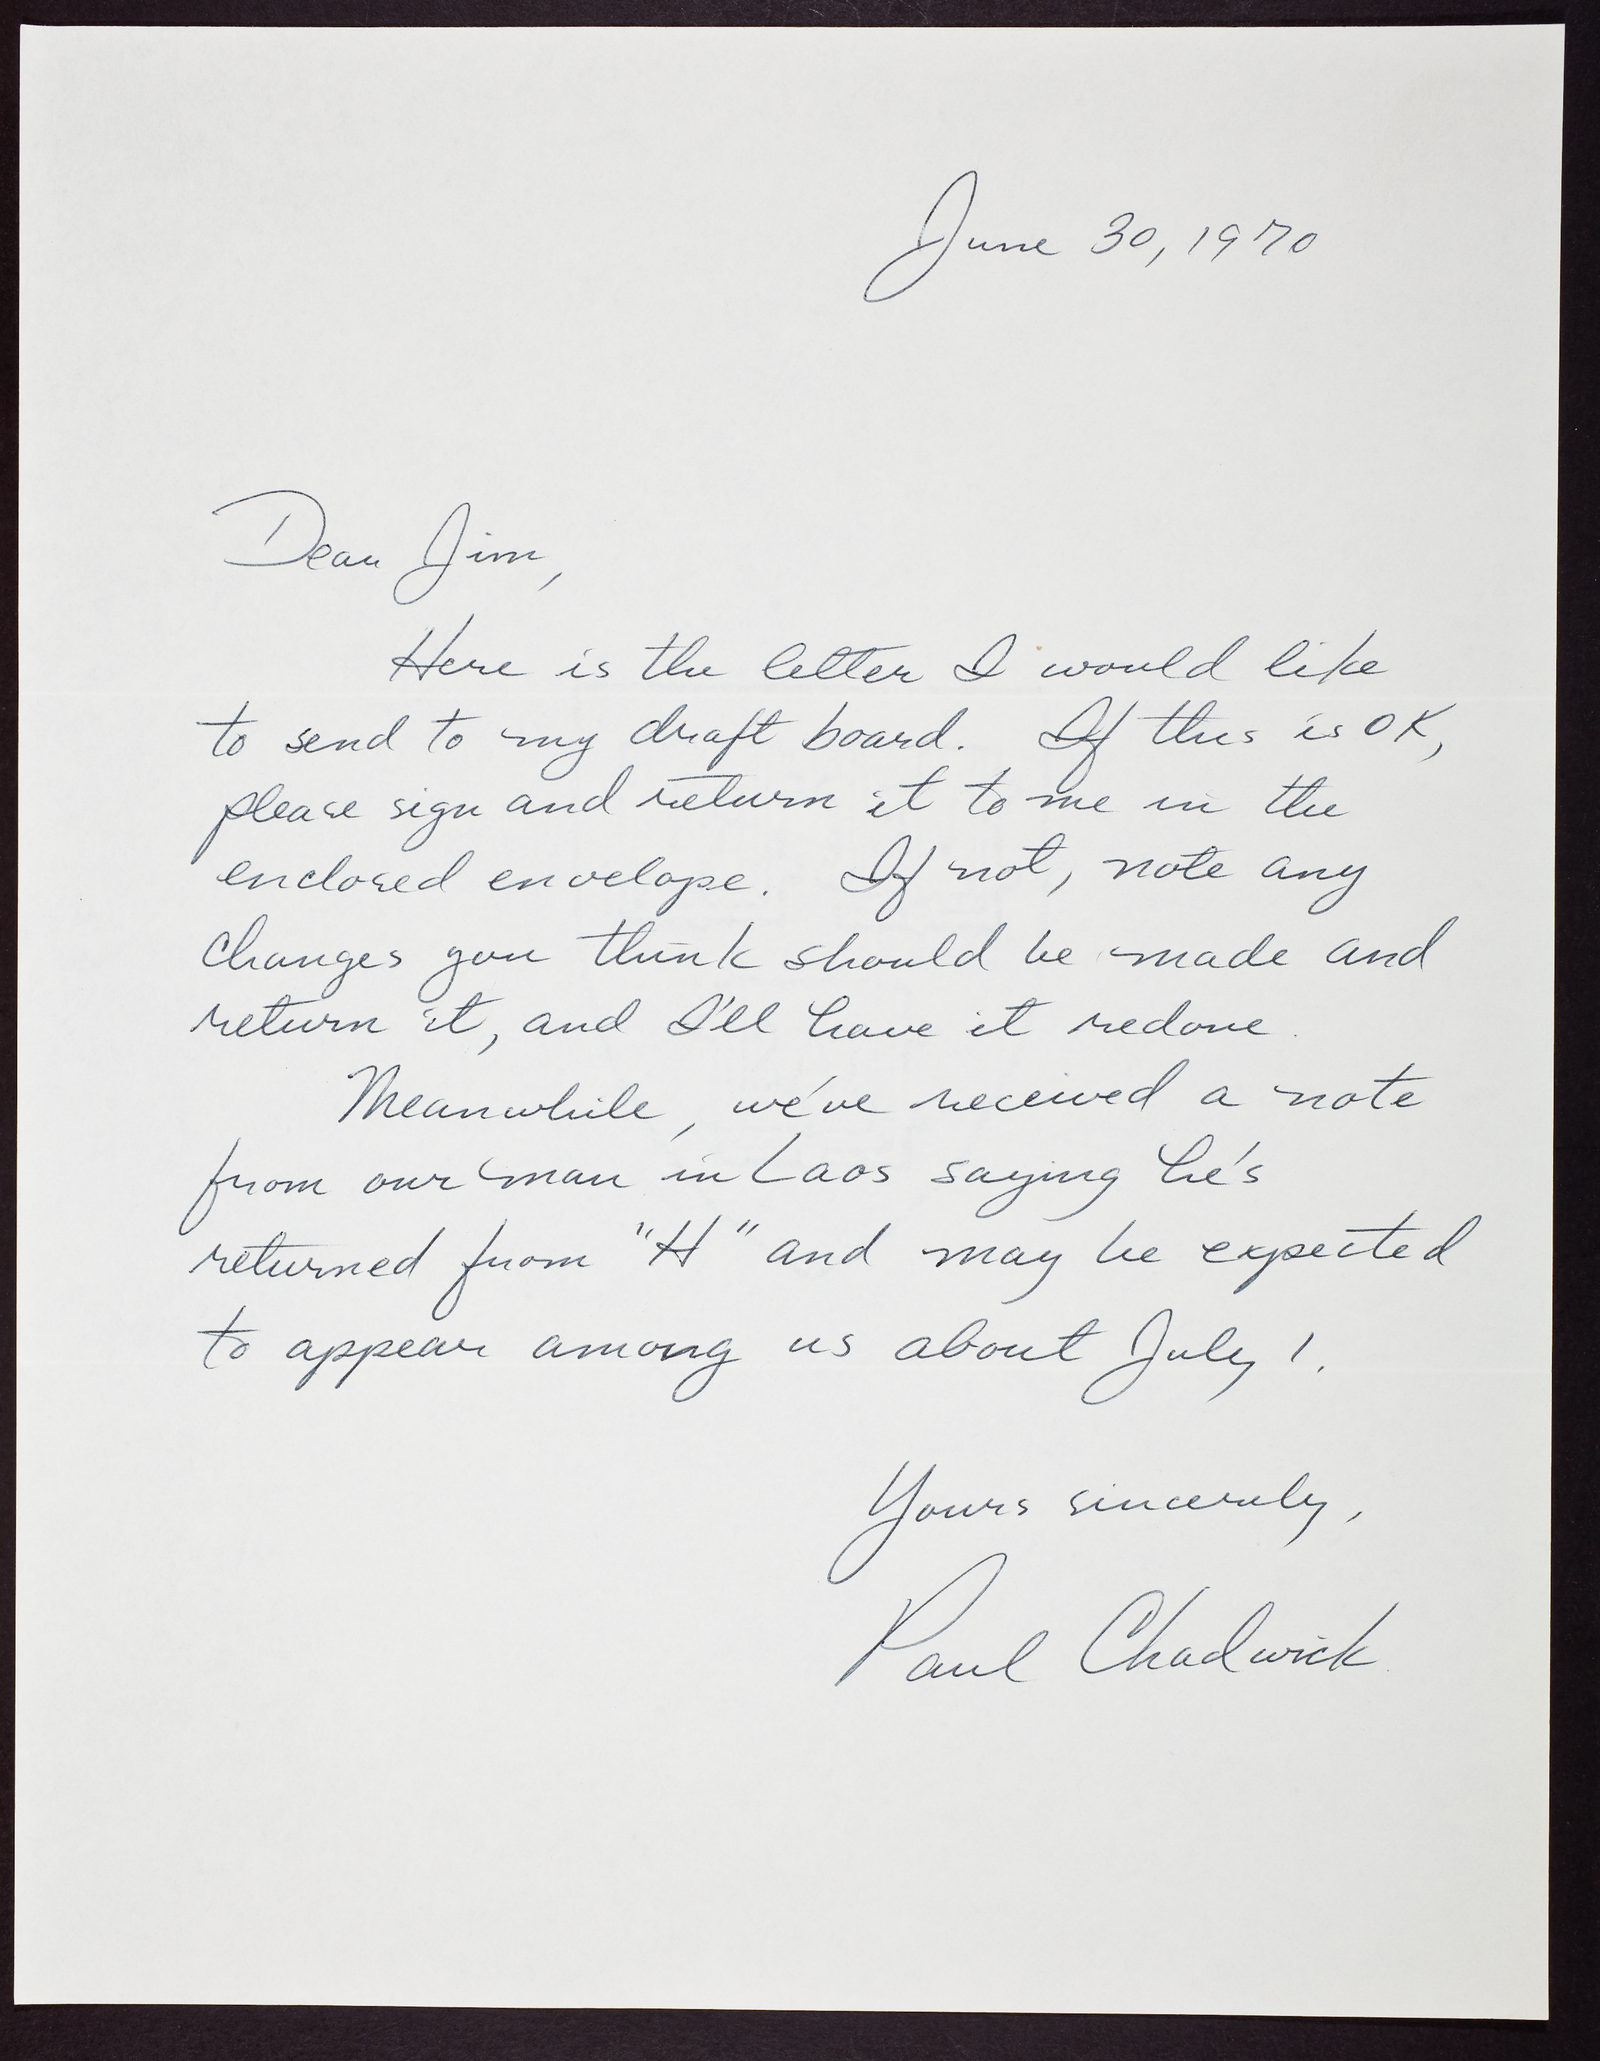 June 30, 1970
Dear Jim,
Here is the letter I would like
to send to my draft board. If this is OK,
please sign and return it to me in the
enclosed envelope. If not, note any
changes you think should be made and
return it, and I'll have it redone.
Meanwhile, we've received a note
from our man in Laos saying he's
returned from "H" and may be expected
to appear among us about July 1.
Yours sincerely,
Paul Chadwick